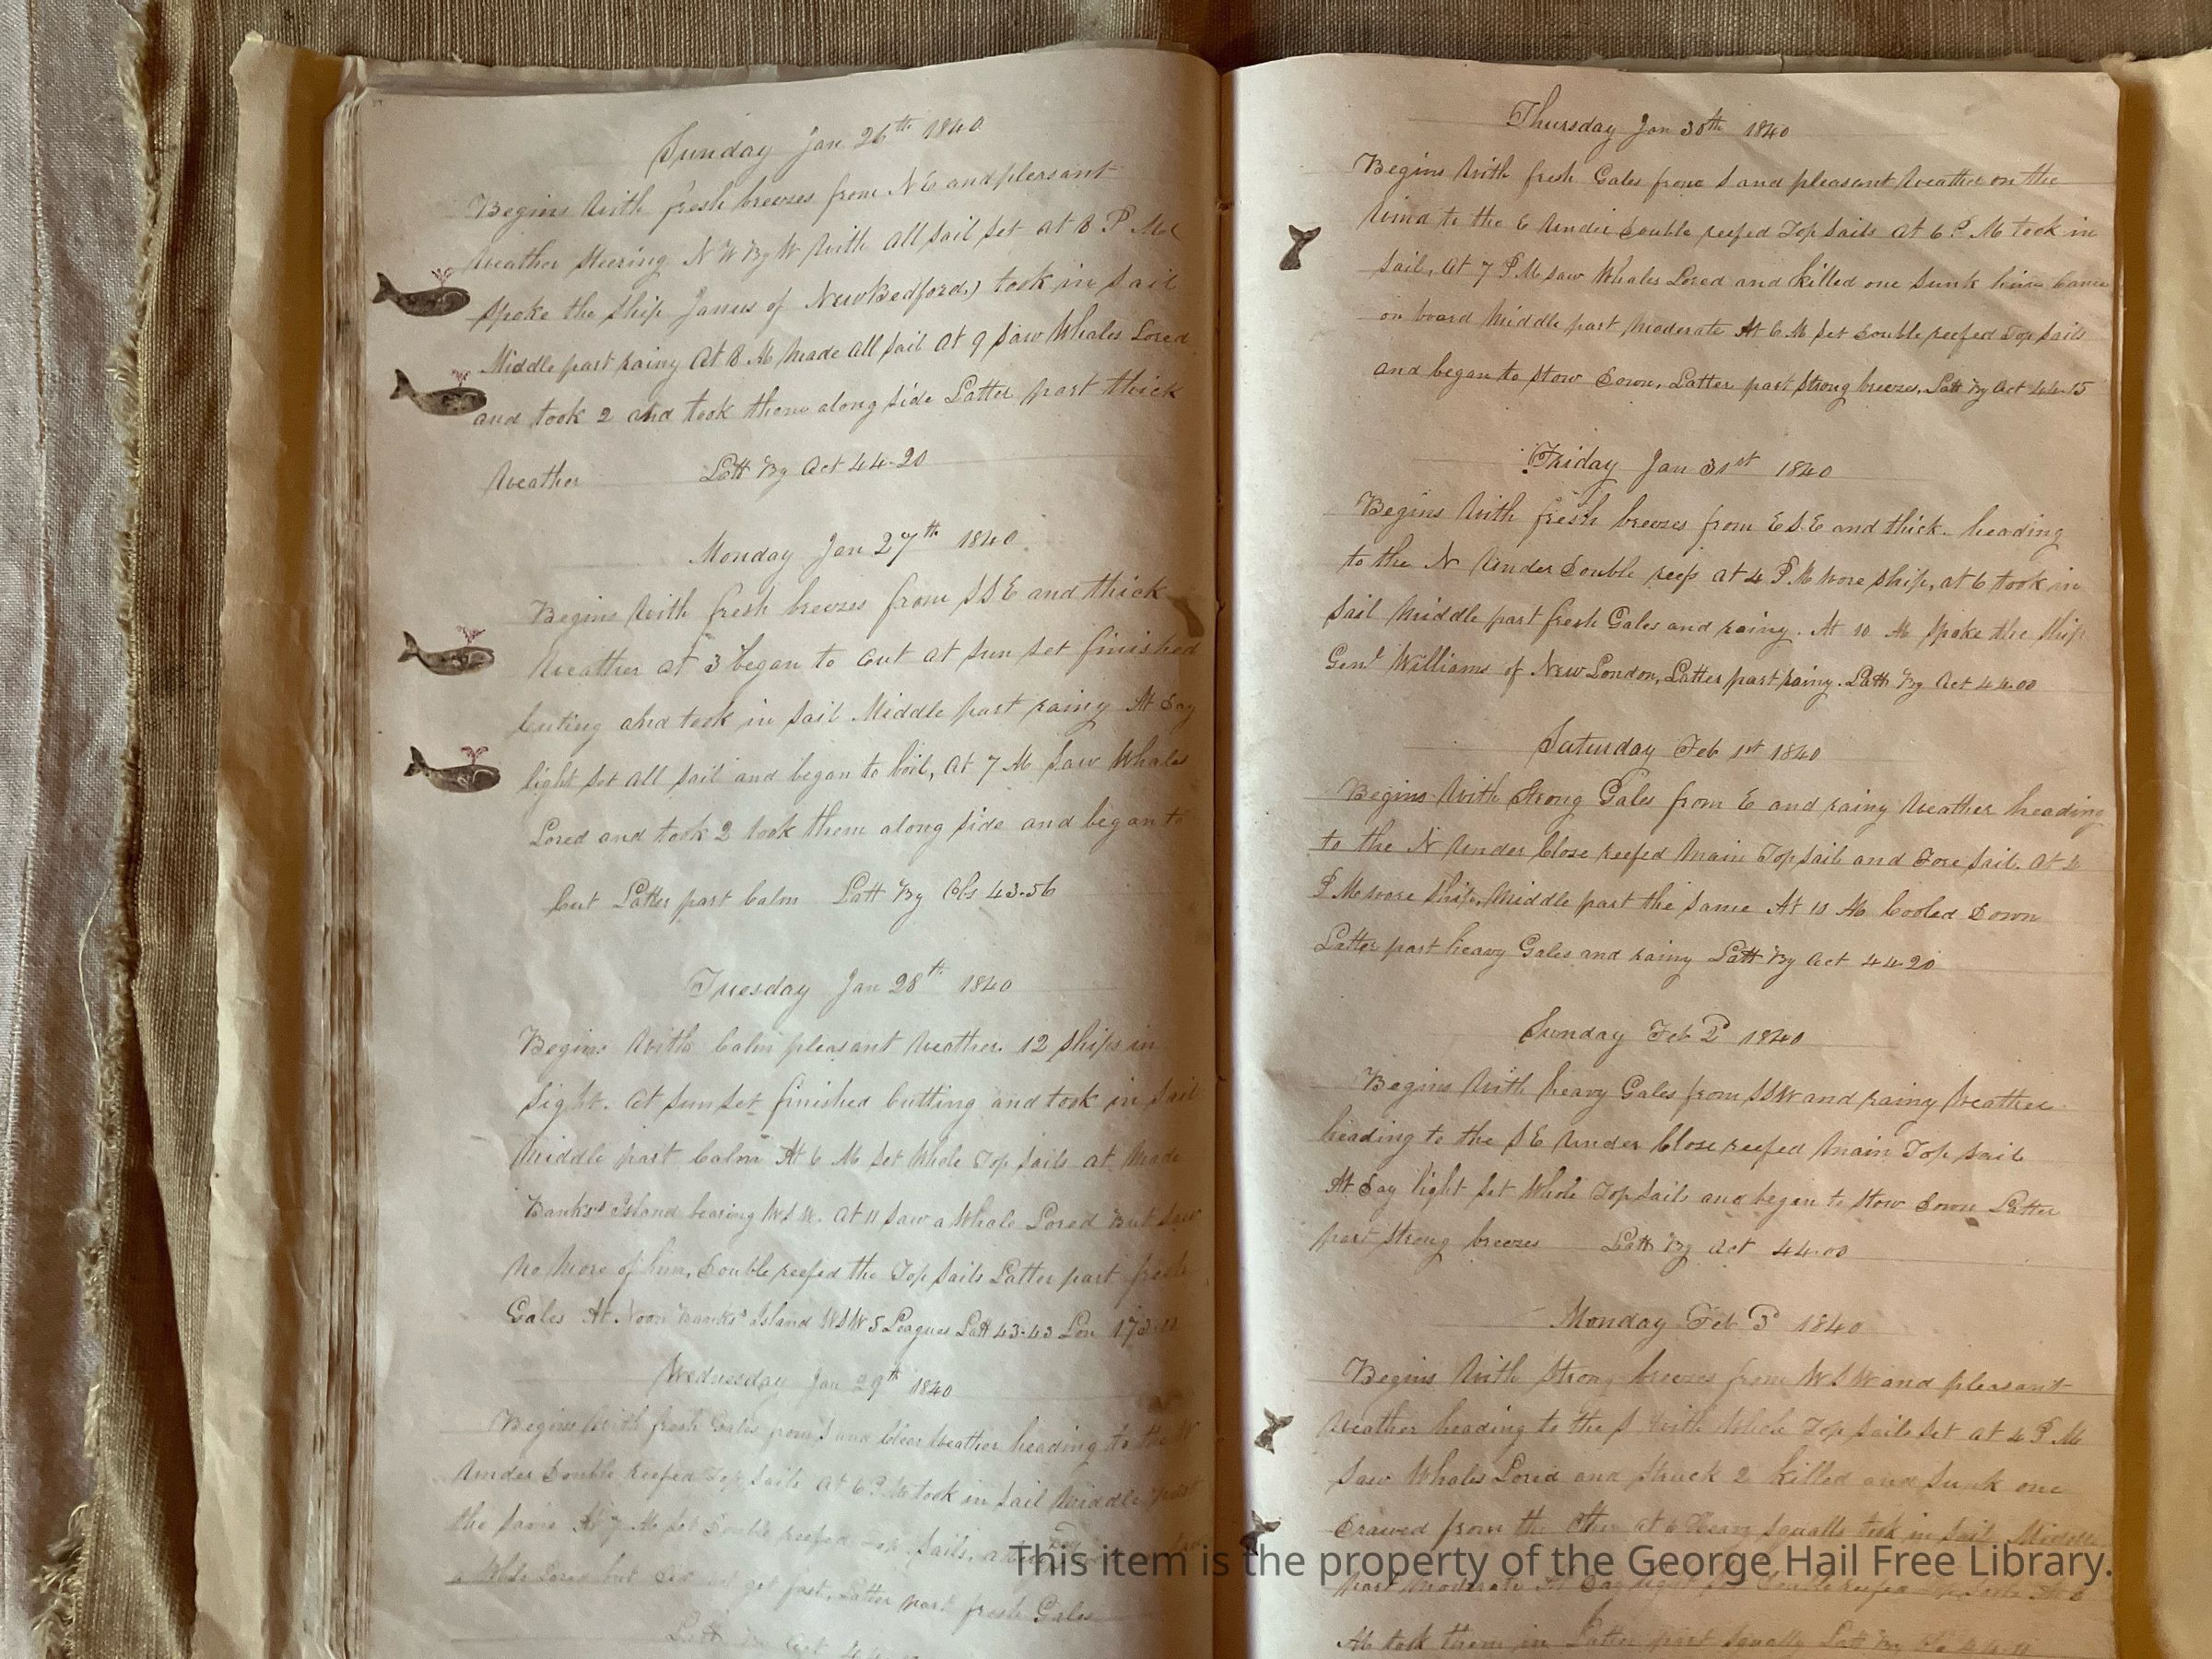 Sunday Jan 26th 1840
Begins With fresh breezes from N E and pleasant
Weather Steering N W By W With all Sail Set at 8 P M (
Spoke the Ship Janus of New Bedford,) took in Sail
Middle part rainy At 8 M Made all Sail at 9 Saw Whales Lored
and took 2 and took them along side Latter part thick
Weather Latt By Act 44-20
Monday Jan 27th 1840
Begins With fresh breezes from S S E and thick
Weather at 3 began to Cut at Sun Set finished
Cuting and took in Sail Middle part rainy At Day
light Set all Sail and began to boil, at 7 M Saw Whales
Lored and took 2 took them along side and began to
Cut Latter part Calm Latt By Obs 43-56
Tuesday Jan 28th 1840
Begins With Calm pleasant Weather. 12 Ships in
Sight. at Sun Set finished Cutting and took in Sail
Middle part Calm At 6 M Set Whole Top Sails at Made
Banks's Island bearing W S W. at 11 Saw a Whale Lored But Saw
No More of him, Double reefed the Top Sails Latter part fresh
Gales At Noon Banks' Island W S W 5 Leagues Latt 43-43 Lon
Wednesday Jan 29th 1840
Begins With fresh Gales from S and Clear Weather heading to the W
Under Double reefed Top Sails at 6 P M took in Sail Middle part
the Same At 7 M Set Double reefed Top Sails,
a Whale Lored but Did not get fast, Latter part fresh Gales
Latt By Act
Thursday Jan 30th 1840
Begins With fresh Gales from S and pleasant Weather on the
Wind to the E Under Double reefed Top Sails at 6 P M took in
Sail, at 7 P M Saw Whales Lored and killed one Sunk him Came
on board Middle part, Moderate At 6 M Set Double reefed Top Sails
and began to Stow Down, Latter part Strong breezes, Latt By Act 44-15
Friday Jan 31st 1840
Begins With fresh breezes from E S E and thick heading
to the N Under Double reefs at 4 P M wore Ship, at 6 took in
Sail Middle part fresh Gales and rainy. At 10 M Spoke the Ship
Genl Williams of New London, Latter part rainy. Latt By Act 44-00
Saturday Feb 1st 1840
Begins With Strong Gales from E and rainy Weather heading
to the N Under Close reefed Main Top Sail and Fore Sail. at
P M wore Ship, Middle part the Same At 10 M Cooled Down
Latter part heavy Gales and rainy Latt By Act 44 20
Sunday Feb 2d 1840
Begins With heavy Gales from S S W and rainy Weather
heading to the S E Under Close reefed Main Top Sail
At Day light Set Whole Top Sails and began to Stow Down Latter
part Strong breezes Latt By Act 44-00
Monday Feb 3d 1840
Begins With Strong breezes from W S W and pleasant
Weather heading to the S With Whole Top Sails Set at 4 P M
Saw Whales Lored and Struck 2 killed and Sunk one
Drawed from the Other at 6 Heavy Squalls took in Sail Middle
This item is the property of the George Hail Free Library.
part Moderate At Day light Set Double reefed Top Sails At
M took them in Latter part Squally Latt By